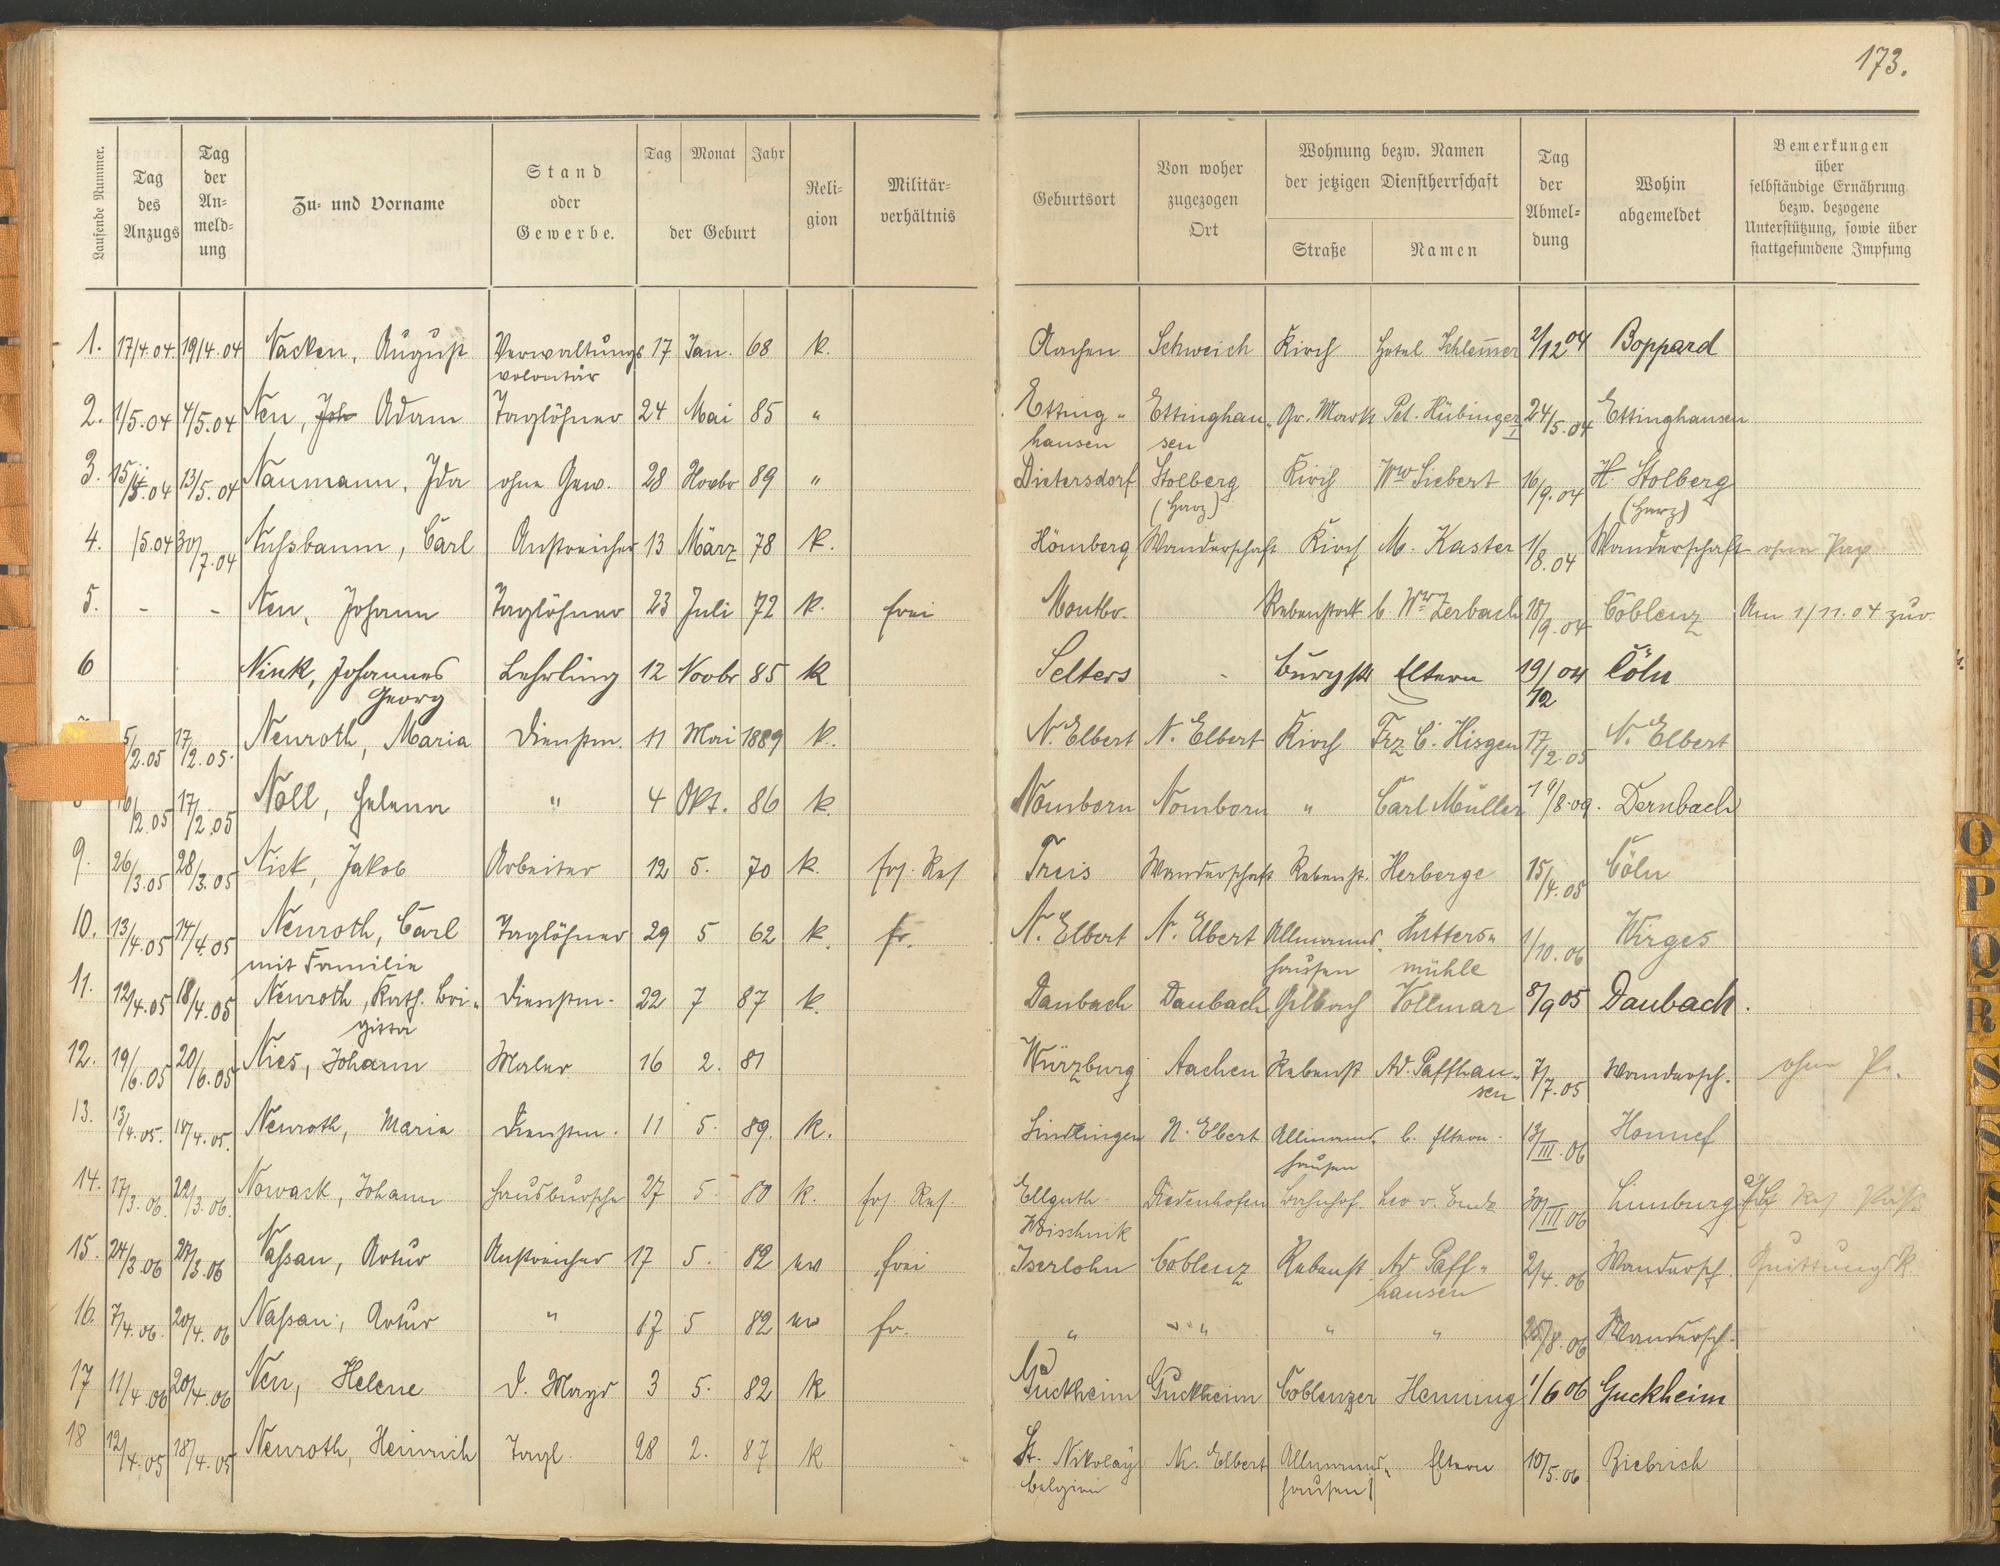 173.
Laufende Nummer.
Tag des Anzugs
Tag der An- meld- ung
Zu- und Vorname
Stand oder Gewerbe.
Tag Monat Jahr
der Geburt
Reli- gion
Militär- verhältnis
Geburtsort
Von woher zugezogen Ort
Wohnung bezw. Namen der jetzigen Dienstherrschaft
Straße Namen
Tag der Abmel- dung
Wohin abgemeldet
Bemerkungen über selbständige Ernährung bezw. bezogene Unterstützung, sowie über stattgefundene Impfung
1. 17/4.04 19/4.04 Nacken, August Verwaltungs 17 Jan. 68 k. Aachen Schweich Kirch Hotel Schlemer 2/12 04 Boppard
volontär
2. 1/5.04 4/5.04 Neu, Joh Adam Taglöhner 24 Mai 85 " Etting- Ettinghau- Gr. Markt Pet. Hübinger 24/5.04 Ettinghausen
hausen sen I
3. 13/5.04 Naumann, Ida ohne Gew. 28 Novbr 89 " Dietersdorf Stolberg Kirch Ww Siebert 16/9.04 Stolberg
(Harz) (Harz)
4. /5.04 30/7.04 Nußbaum, Carl Anstreicher 13 März 78 k. Hömberg Wanderschaft Kirch M. Kaster 1/8.04 Wanderschaft ohne Pap
5. - - Neu, Johann Taglöhner 23 Juli 72 k. frei Montbr. Rebenstock b. Ww Zerbach 18/9.04 Coblenz Am 1/11.04 zur.
6 Nink, Johannes Lehrling 12 Novbr 85 k Selters - Burgstr Eltern 19/12 04 Cöln
Georg
5/2.05 17/2.05. Neuroth, Maria Dienstm. 11 Mai 1889 k. N. Elbert N. Elbert Kirch Frz C. Hisgen 17/2.05 N. Elbert
16/2.05 17/2.05 Noll, Helena " 4 Okt. 86 k. Nomborn Nomborn " Carl Müller 19/8.09. Dernbach
9. 26/3.05 28/3.05 Nick, Jakob Arbeiter 12 5. 70 k. Ers. Res Treis Wanderschaft Rebenst. Herberge 15/4.05 Cöln
10. 13/4.05 14/4.05 Neuroth, Carl Taglöhner 29 5 62 k. fr. N. Elbert N. Elbert Allmanns- Hutters- 1/10.06 Wirges
mit Familie hausen mühle
11. 12/4.05 18/4.05 Neuroth, Kath. Bri- Dienstm. 22 7 87 k. Daubach Daubach Gelbach Vollmar 8/9 05 Daubach.
gitta
12. 19/6.05 20/6.05 Nies, Johann Maler 16 2. 81 Würzburg Aachen Rebenst Ad. Paffhau- 7/7.05 Wandersch. ohne
sen
13. 13/4.05. 18/4.05. Neuroth, Maria Dienstm. 11 5. 89. k. Lindlingen N. Elbert Allmanns- b. Eltern. 13/III.06 Honnef
hausen
14. 17/3.06. 22/3.06. Nowack, Johann Hausbursche 27 5. 80 k. Ers. Res. Ellguth Diedenhofen Bahnhof. Leo v. Ende 30/III.06 Limburg Res
Woischnik
15. 24/3.06 27/3.06 Naßan, Artur Anstreicher 17 5. 82 ev frei Iserlohn Coblenz Rebenst. Ad Paff- 2/4.06 Wandersch. Quittungsk.
hausen
16. 7/4.06. 20/4.06 Naßan, Artur " 17 5 82 ev fr. " " " " 25/8.06 Wandersch.
17 11/4.06 20/4.06 Neu, Helene D. Magd 3 5. 82 k Guckheim Guckheim Coblenzer Henning 1/6 06 Guckheim
18 12/4.05 18/4.05 Neuroth, Heinrich Tagl. 28 2. 87 k St. Nikolay Nr. Elbert Allmanns- Eltern 10/5.06 Biebrich
Belgien hausen
O
P
Q
R
S